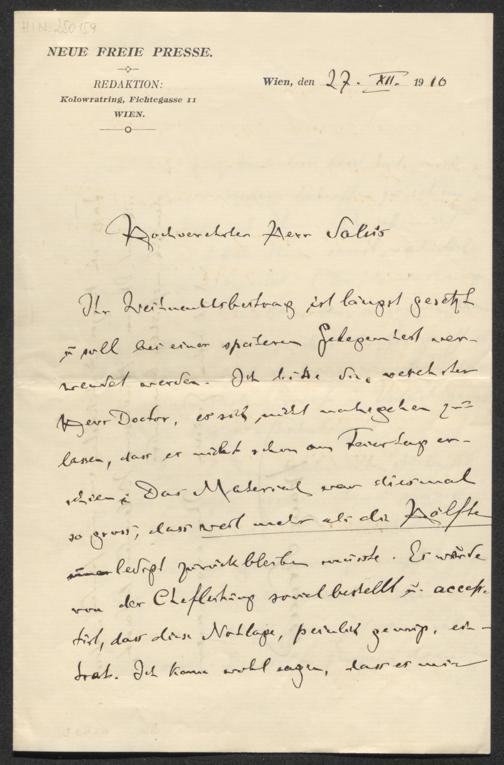 HIN 250159
NEUE FREIE PRESSE.
REDAKTION:
Kolowratring, Fichtegasse 11
WIEN.
Wien, den 27. XII. 1910
Hochverehrter Herr Salus
Ihr Weihnachtsbeitrag ist längst gesetzt
u soll bei einer späteren Gelegenheit ver-
wendet werden. Ich bitte Sie, verehrter
Herr Doctor, es sich nicht nahegehen zu
lassen, dass er nicht schon am Feiertag er-
schien; Das Material war diesmal
so gross, dass weit mehr als die Hälfte
unerledigt zurückbleiben musste. Es wurde
von der Chefleitung soviel bestellt u. accep-
tirt, dass diese Notlage, peinlich genug, ein-
trat. Ich kann wohl sagen, dass es mir